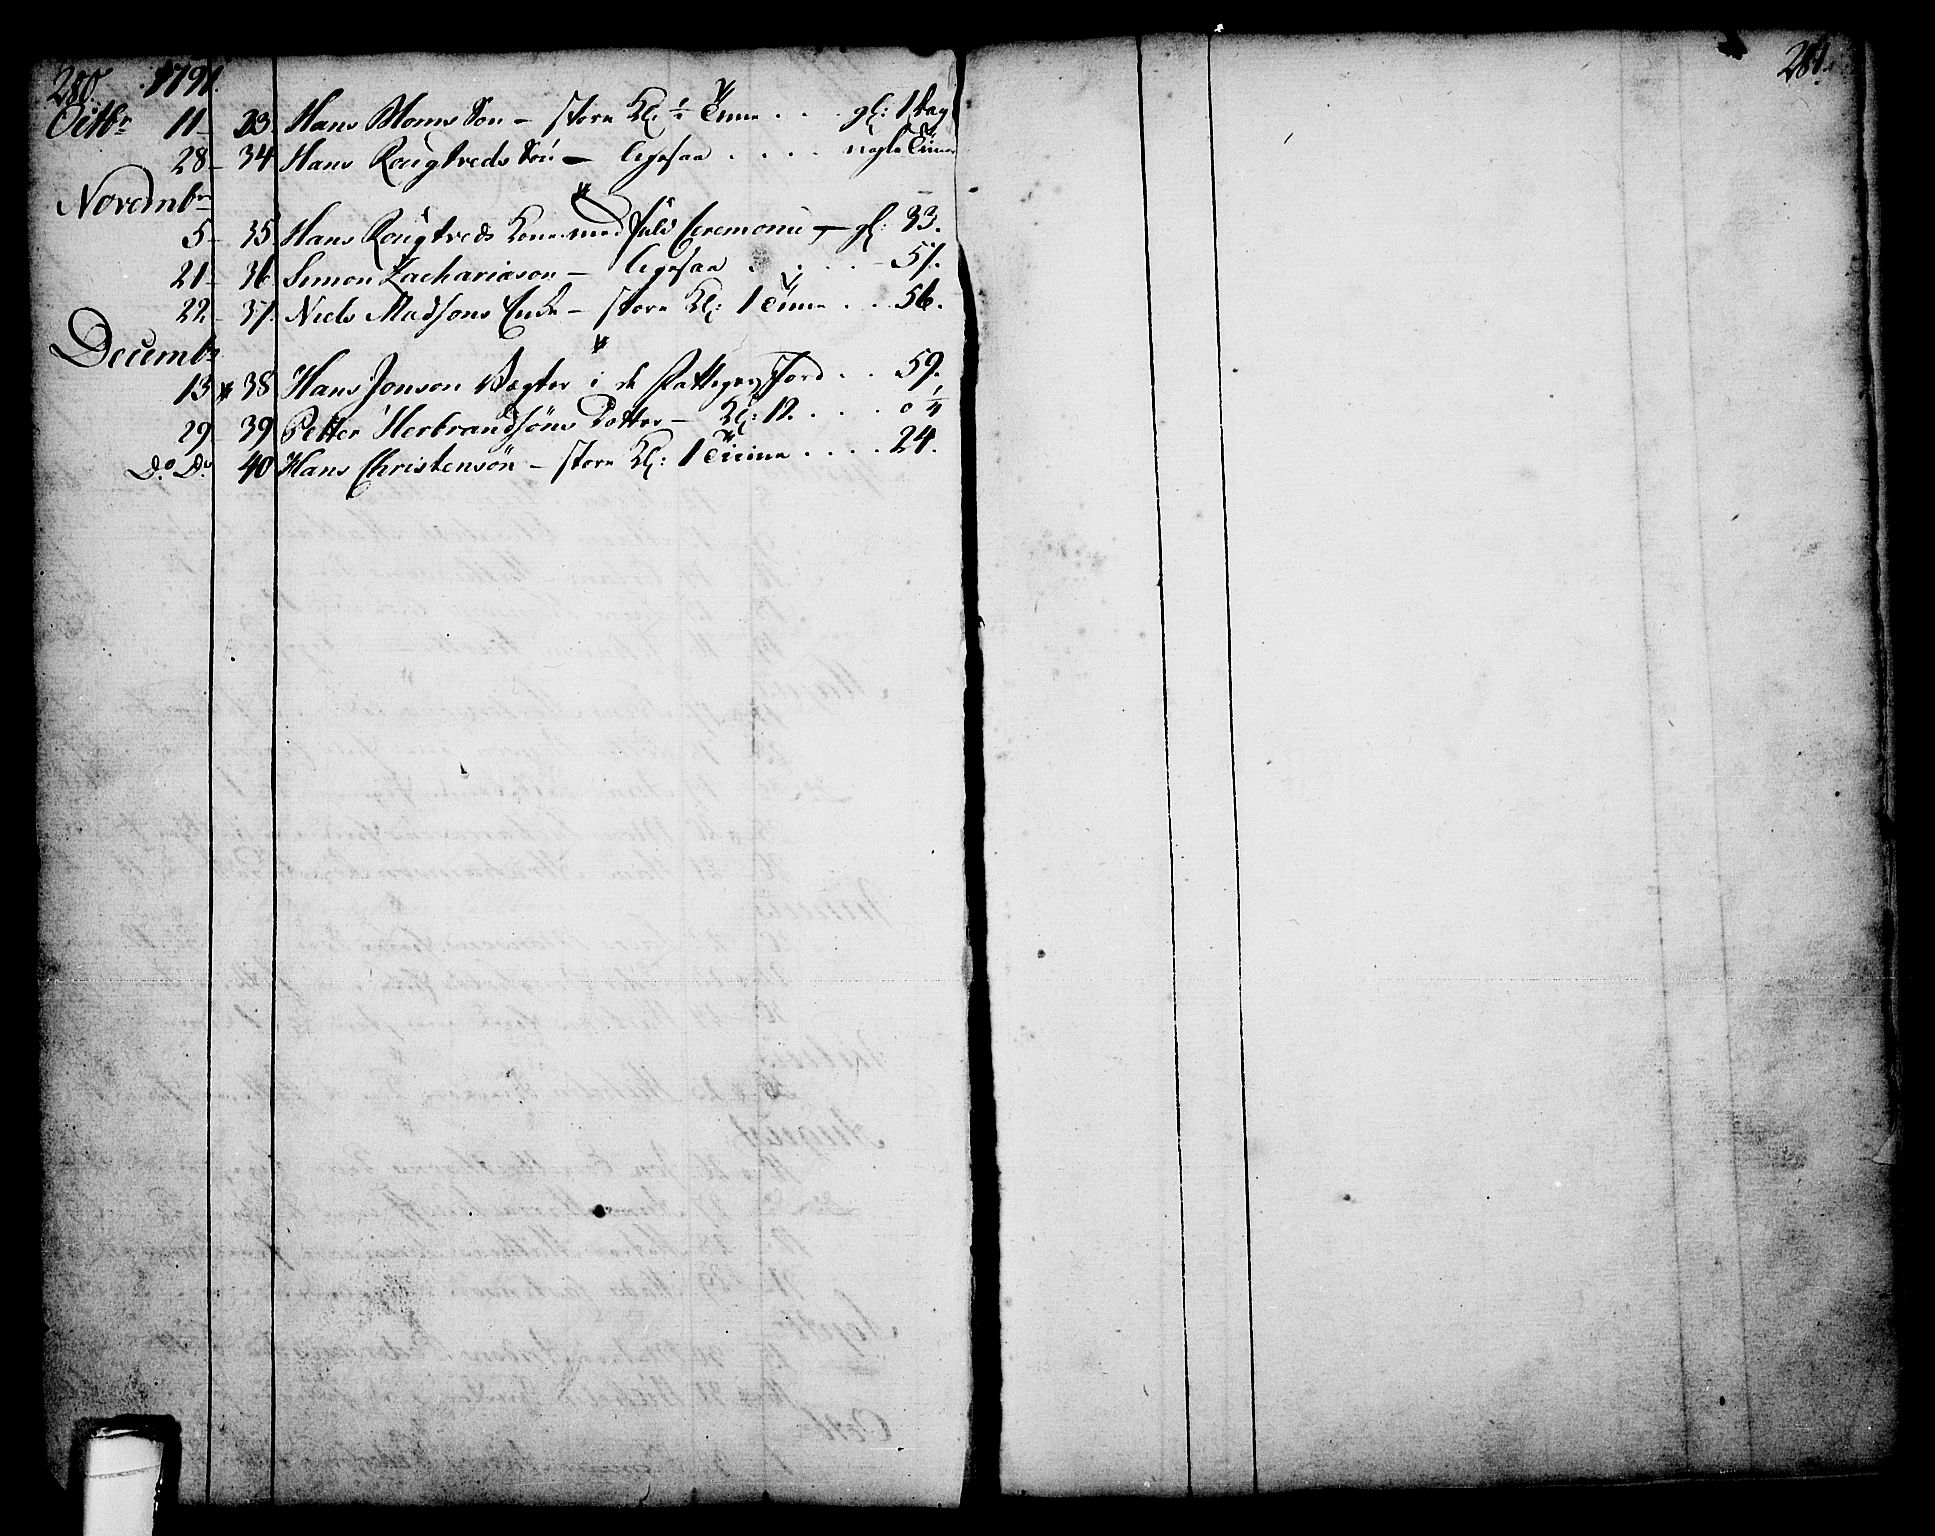 280. 1791.
Octbr 11 – 33. Hans Bloms Søn – store Kl: ½ Time . . . gl: 1 Dag
28 – 34. Hans Rougtveds Søn – ligesaa . . . . nogle Timer
Novembr
5 – 35. Hans Rougtveds Kone med fuld Ceremonie – gl: 33.
21 – 36. Simon Zachariason – ligesaa . . . . . 57.
22 – 37. Niels Madsons Enke – store Kl: 1 Time . . . 56.
Decembr
13 38. Hans Jonson Vægter i de Fattiges Jord . . 59.
29 39. Petter Herbrandsøns Dotter – Kl: 12. . . . . 0 ¼
Do. Do. 40. Hans Christensøn – store Kl: 1 Time . . . . 24.
281.